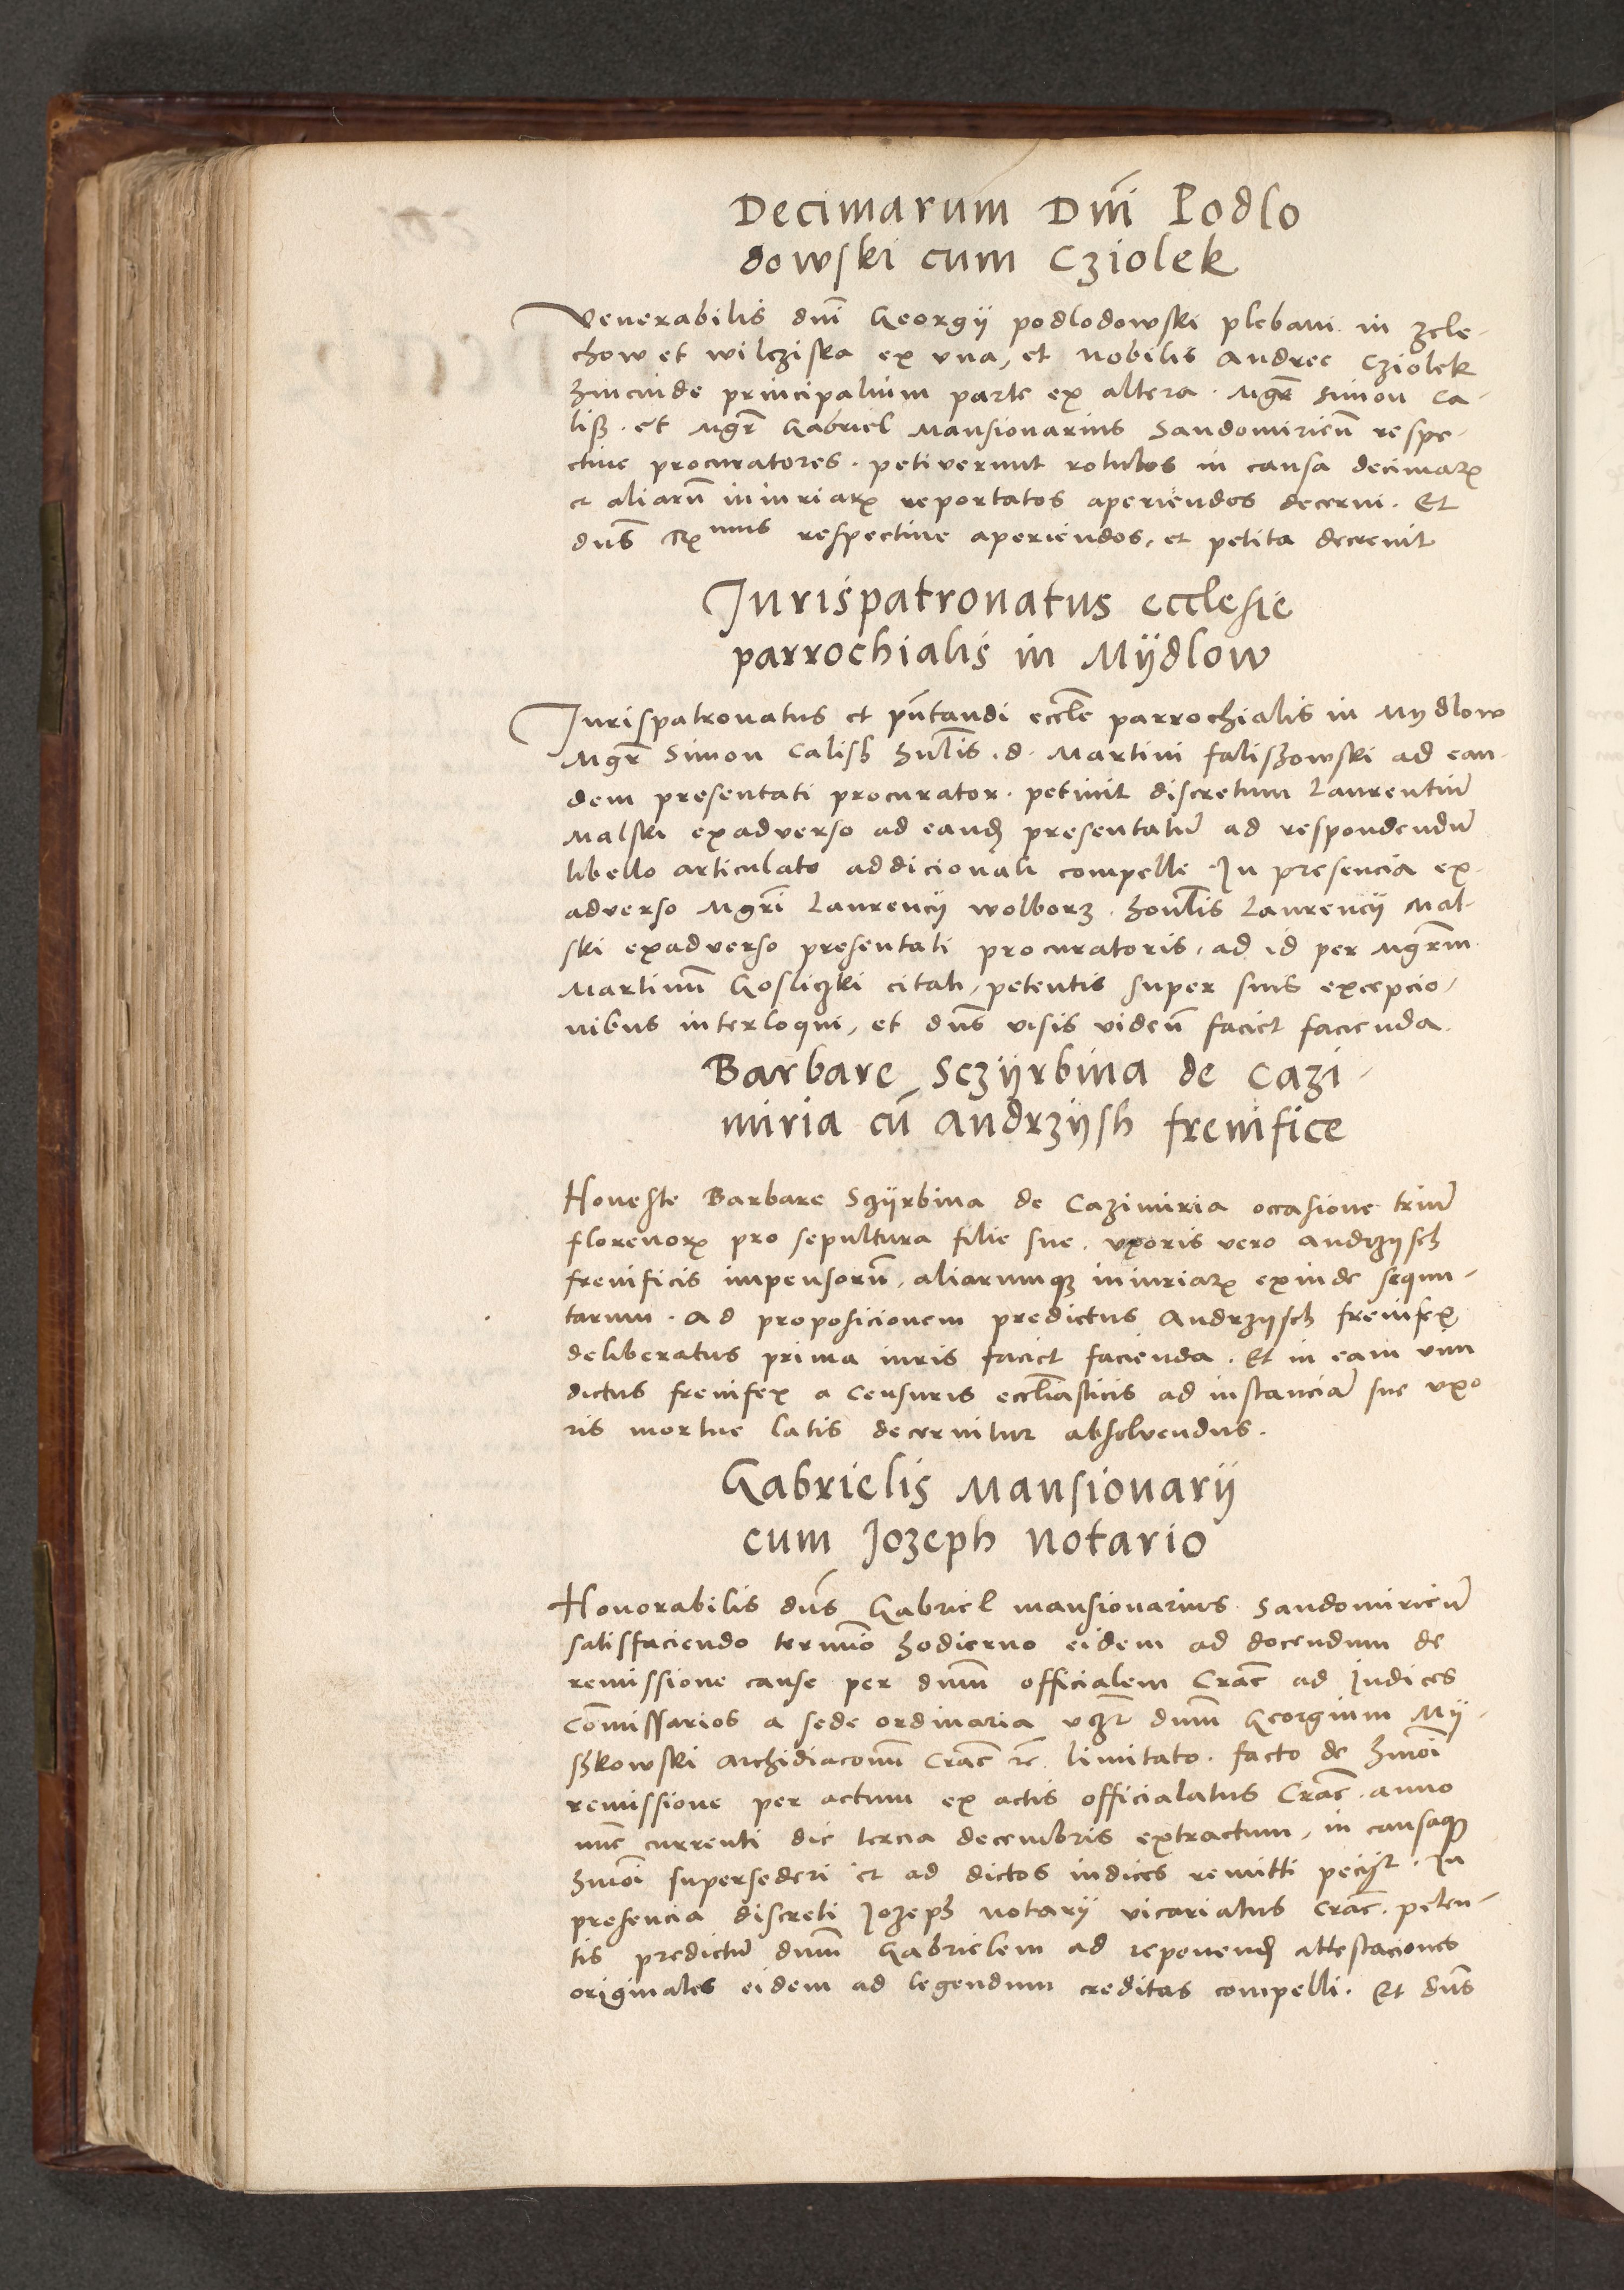 Decimarum Dni Podlo
dowski cum Cziolek
Venerabilis dni Georgij podlodowski plebani in zele-
chow et wilcziska ex vna, et Nobilis Andree Cziolek
hincinde principalium parte ex altera. Mgr Simon Ca-
lisz. et Mgr Gabriel Mansionarius Sandomirien respe-
ctiue procuratores. petiverunt rotulos in causa decimar
et aliarū iniuriar reportatos aperiendos decerni. Et
dns Rmus respectiue aperiendos, et petita decreuit
Jurispatronatus ecclesie
parrochialis in Mÿdlow
Jurispatronatus et pntandi eccle parrochialis in Mydlow
Mgr Simon Calish hnlis. d. Martini faliszowski ad ean-
dem presentati procurator. petiuit discretum Laurentiū
Malski exadverso ad eand presentatū ad respondendū
libello articulato addicionali compelli. In presencia ex
adverso Mgri Laurencij wolborz. honlis Laurencij Mal-
ski exadverso presentati procuratoris, ad id per Mgrm
Martinū Gosliczki citati, petentis super suis excepcio-
nibus interloqui, et dns visis viden faciet facienda.
Barbare Sczÿrbina de Cazi-
miria cū Andrzÿsh frenifice
Honeste Barbare Sczÿrbina de Cazimiria occasione triū
florenor pro sepultura filie sue. vxoris vero Andrzysch
frenificis impensorū, aliarumq iniuriar exinde sequu-
tarum. Ad proposicionem predictus Andrzysch frenifex
deliberatus prima iuris faciet facienda. Et in eam
dictus frenifex a Censuris eccliasticis ad instanciā sue vxo
ris mortue latis decernitur absolvendus.
Gabrielis Mansionarij
cum Jozeph Notario
Honorabilis dns Gabriel mansionarius Sandomirien
satisfaciendo termino hodierno eidem ad docendum de
remissione cause per dnm officialem Crac ad Iudices
Comissarios a sede ordinaria vczt dnm Georgium Mÿ-
szkowski Archidiaconū Crac rc limitato. facto de hmoi
remissione per actum ex actis officialatus Crac. anno
nunc currenti die tercia decembris extractum, in causaq
hmoi supersederi et ad dictos iudices remitti peciit. In
presencia discreti Jozeph notarij vicariatus Crac. peten-
tis predictū dnm Gabrielem ad reponend attestaciones
originales eidem ad legendum creditas compelli. Et dns